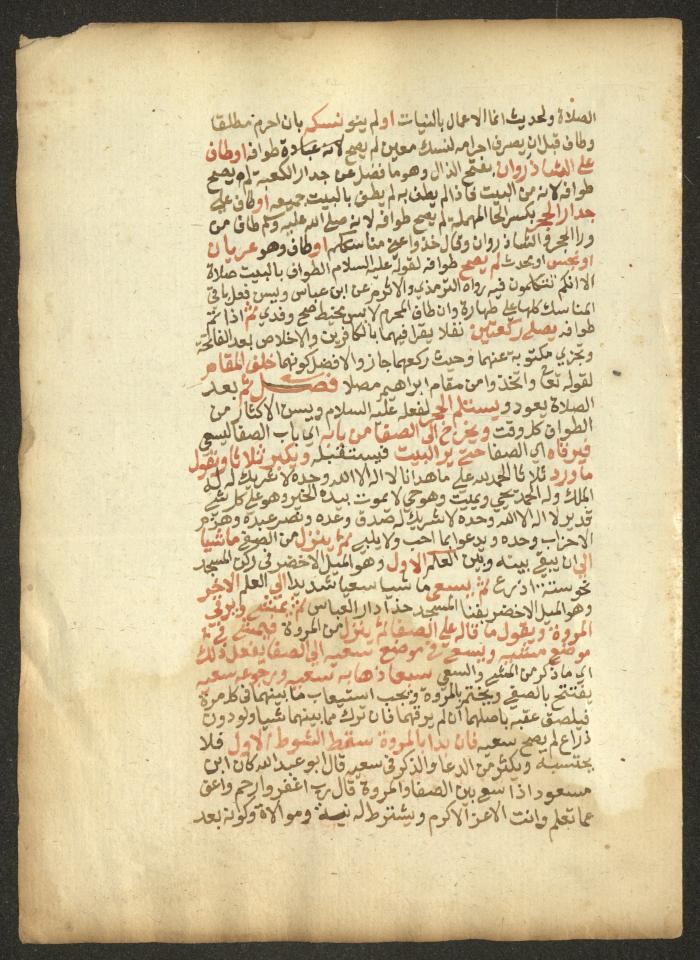 الصلاة ولحديث انما الاعمال بالنيات او لم ينو نسكه بان احرم مطلقا
وطاف قبل ان يصرف احرامه لنسك معين لم يصح لانه عبادة طوافه او طاف
على الشاذروان بفتح الذال وهو ما فضل عن جدار الكعبة لم يصح
طوافه لانه من البيت فاذا لم يطف به لم يطف بالبيت جميعه او طاف على
جدار الحجر بكسر الحا المهملة لم يصح طوافه لانه صلى الله عليه وسلم طاف من
ورا الحجر والشاذروان وقال خذوا عني مناسككم او طاف وهو عريان
او نجس او محدث لم يصح طوافه لقوله عليه السلام الطواف بالبيت صلاة
الا انكم تتكلمون فيه رواه الترمذي والاثرم عن ابن عباس ويسن فعل باقي
المناسك كلها على طهارة وان طاف المحرم لابس مخيط صح وفدي ثم اذا تم
طوافه يصلي ركعتين نفلا يقرا فيهما بالكافرين والاخلاص بعد الفاتحة
وتجزي مكتوبة عنهما وحيث ركعهما جاز والافضل كونهما خلف المقام
لقوله تعالى واتخذوا من مقام ابراهيم مصلا فصل ثم بعد
الصلاة يعود ويستلم الحجر لفعله عليه السلام ويسن الاكثار من
الطواف كل وقت ويخرج الى الصفا من بابه اي باب الصفا ليسعى
فيرقاه اي الصفا حتى ير البيت فيستقبله ويكبر ثلاثا ويقول
ما ورد ثلاثا الحمد لله على ما هدانا لا اله الا الله وحده لا شريك له له
الملك وله الحمد يحي ويميت وهو حي لا يموت بيده الخير وهو على كل شي
قدير لا اله الا الله وحده لا شريك له صدق وعده ونصر عبده وهزم
الاحزاب وحده ويدعوا بما احب ولا يلبي ثم ينزل من الصفى ماشيا
الى ان يبقى بينه وبين العلم الاول وهو الميل الاخضر في ركن المسجد
نحو ستة اذرع ثم يسعى ماشيا سعيا شديدا الى العلم الاخر
وهو الميل الاخضر بفنا المسجد حذا دار العباس ثم يمشي ويرقي
المروة ويقول ما قاله على الصفا ثم ينزل من المروة فيمشي في
موضع مشيه ويسعى في موضع سعيه الى الصفا يفعل ذلك
اي ما ذكر من المشي والسعي سبعا ذهابه سعيه ورجوعه سعيه
يفتتح بالصفى ويختم بالمروة ويجب استيعاب ما بينهما في كل مرة
فيلصق عقبه باصلهما ان لم يرقهما فان ترك مما بينهما شيا ولو دون
ذراع لم يصح سعيه فان بدا بالمروة سقط الشوط الاول فلا
يحتسبه ويكثر من الدعا والذكر في سعيه قال ابو عبد الله كان ابن
مسعود اذا سعى بين الصفا والمروة قال رب اغفر وارحم واعف
عما تعلم وانت الاعز الاكرم ويشترط له نية وموالاة وكونه بعد